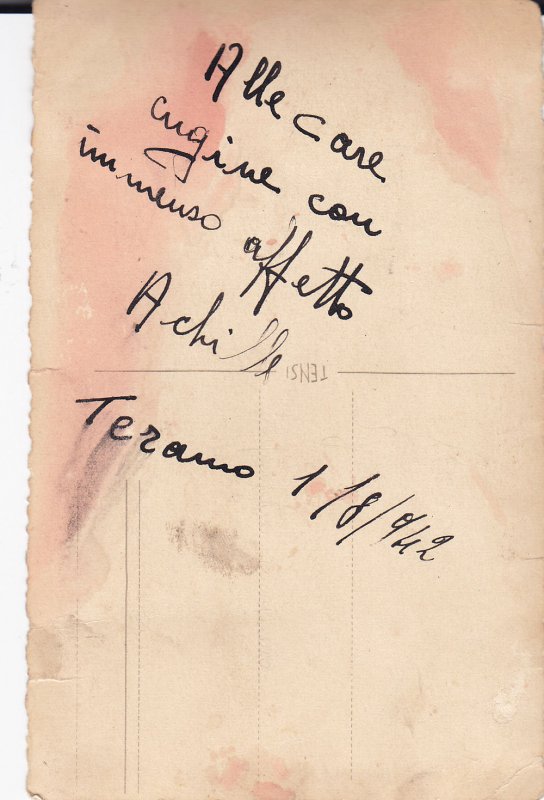 Alle care
cugine con
immenso affetto
Achille
TENSI
Teramo 1/8/942